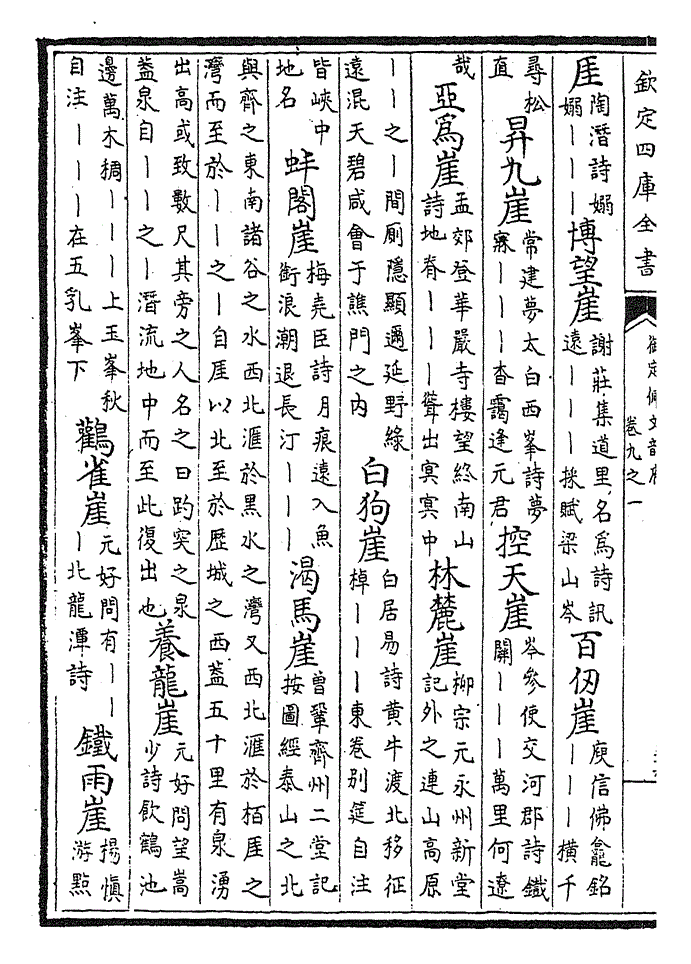 欽定四庫全書
御定佩文韻府
卷九之一
厓 陶潛詩嫋嫋丨丨丨 博望崖 謝莊集道里名為詩訊遠丨丨丨採賦梁山岑 百仞崖 庾信佛龕銘丨丨丨横千
尋松直 昇九崖 常建夢太白西峯詩夢寐丨丨丨杳靄逢元君 控天崖 岑參使交河郡詩鐵關丨丨丨萬里何遼
哉 亞為崖 孟郊登華嚴寺樓望終南山詩地脊丨丨丨聳出㝠㝠中 林麓崖 柳宗元永州新堂記外之連山高原
丨丨之丨間厠隱顯邇延野綠遠混天碧咸會于譙門之内 白狗崖 白居易詩黄牛渡北移征棹丨丨丨東卷别筵自注
皆峽中地名 蚌閣崖 梅堯臣詩月痕遠入魚銜浪潮退長汀丨丨丨 渴馬崖 曾鞏齊州二堂記按圖經泰山之北
與齊之東南諸谷之水西北滙於黑水之灣又西北滙於栢厓之灣而至於丨丨之丨自厓以北至於歴城之西蓋五十里有泉湧
出高或致數尺其旁之人名之曰趵突之泉蓋泉自丨丨之丨潛流地中而至此復出也 養龍崖 元好問望嵩少詩飲鶴池
邊萬木稠丨丨丨上玉峯秋自注丨丨丨在五乳峯下 鸛雀崖 元好問有丨丨丨北龍潭詩 鐵雨崖 楊慎游點